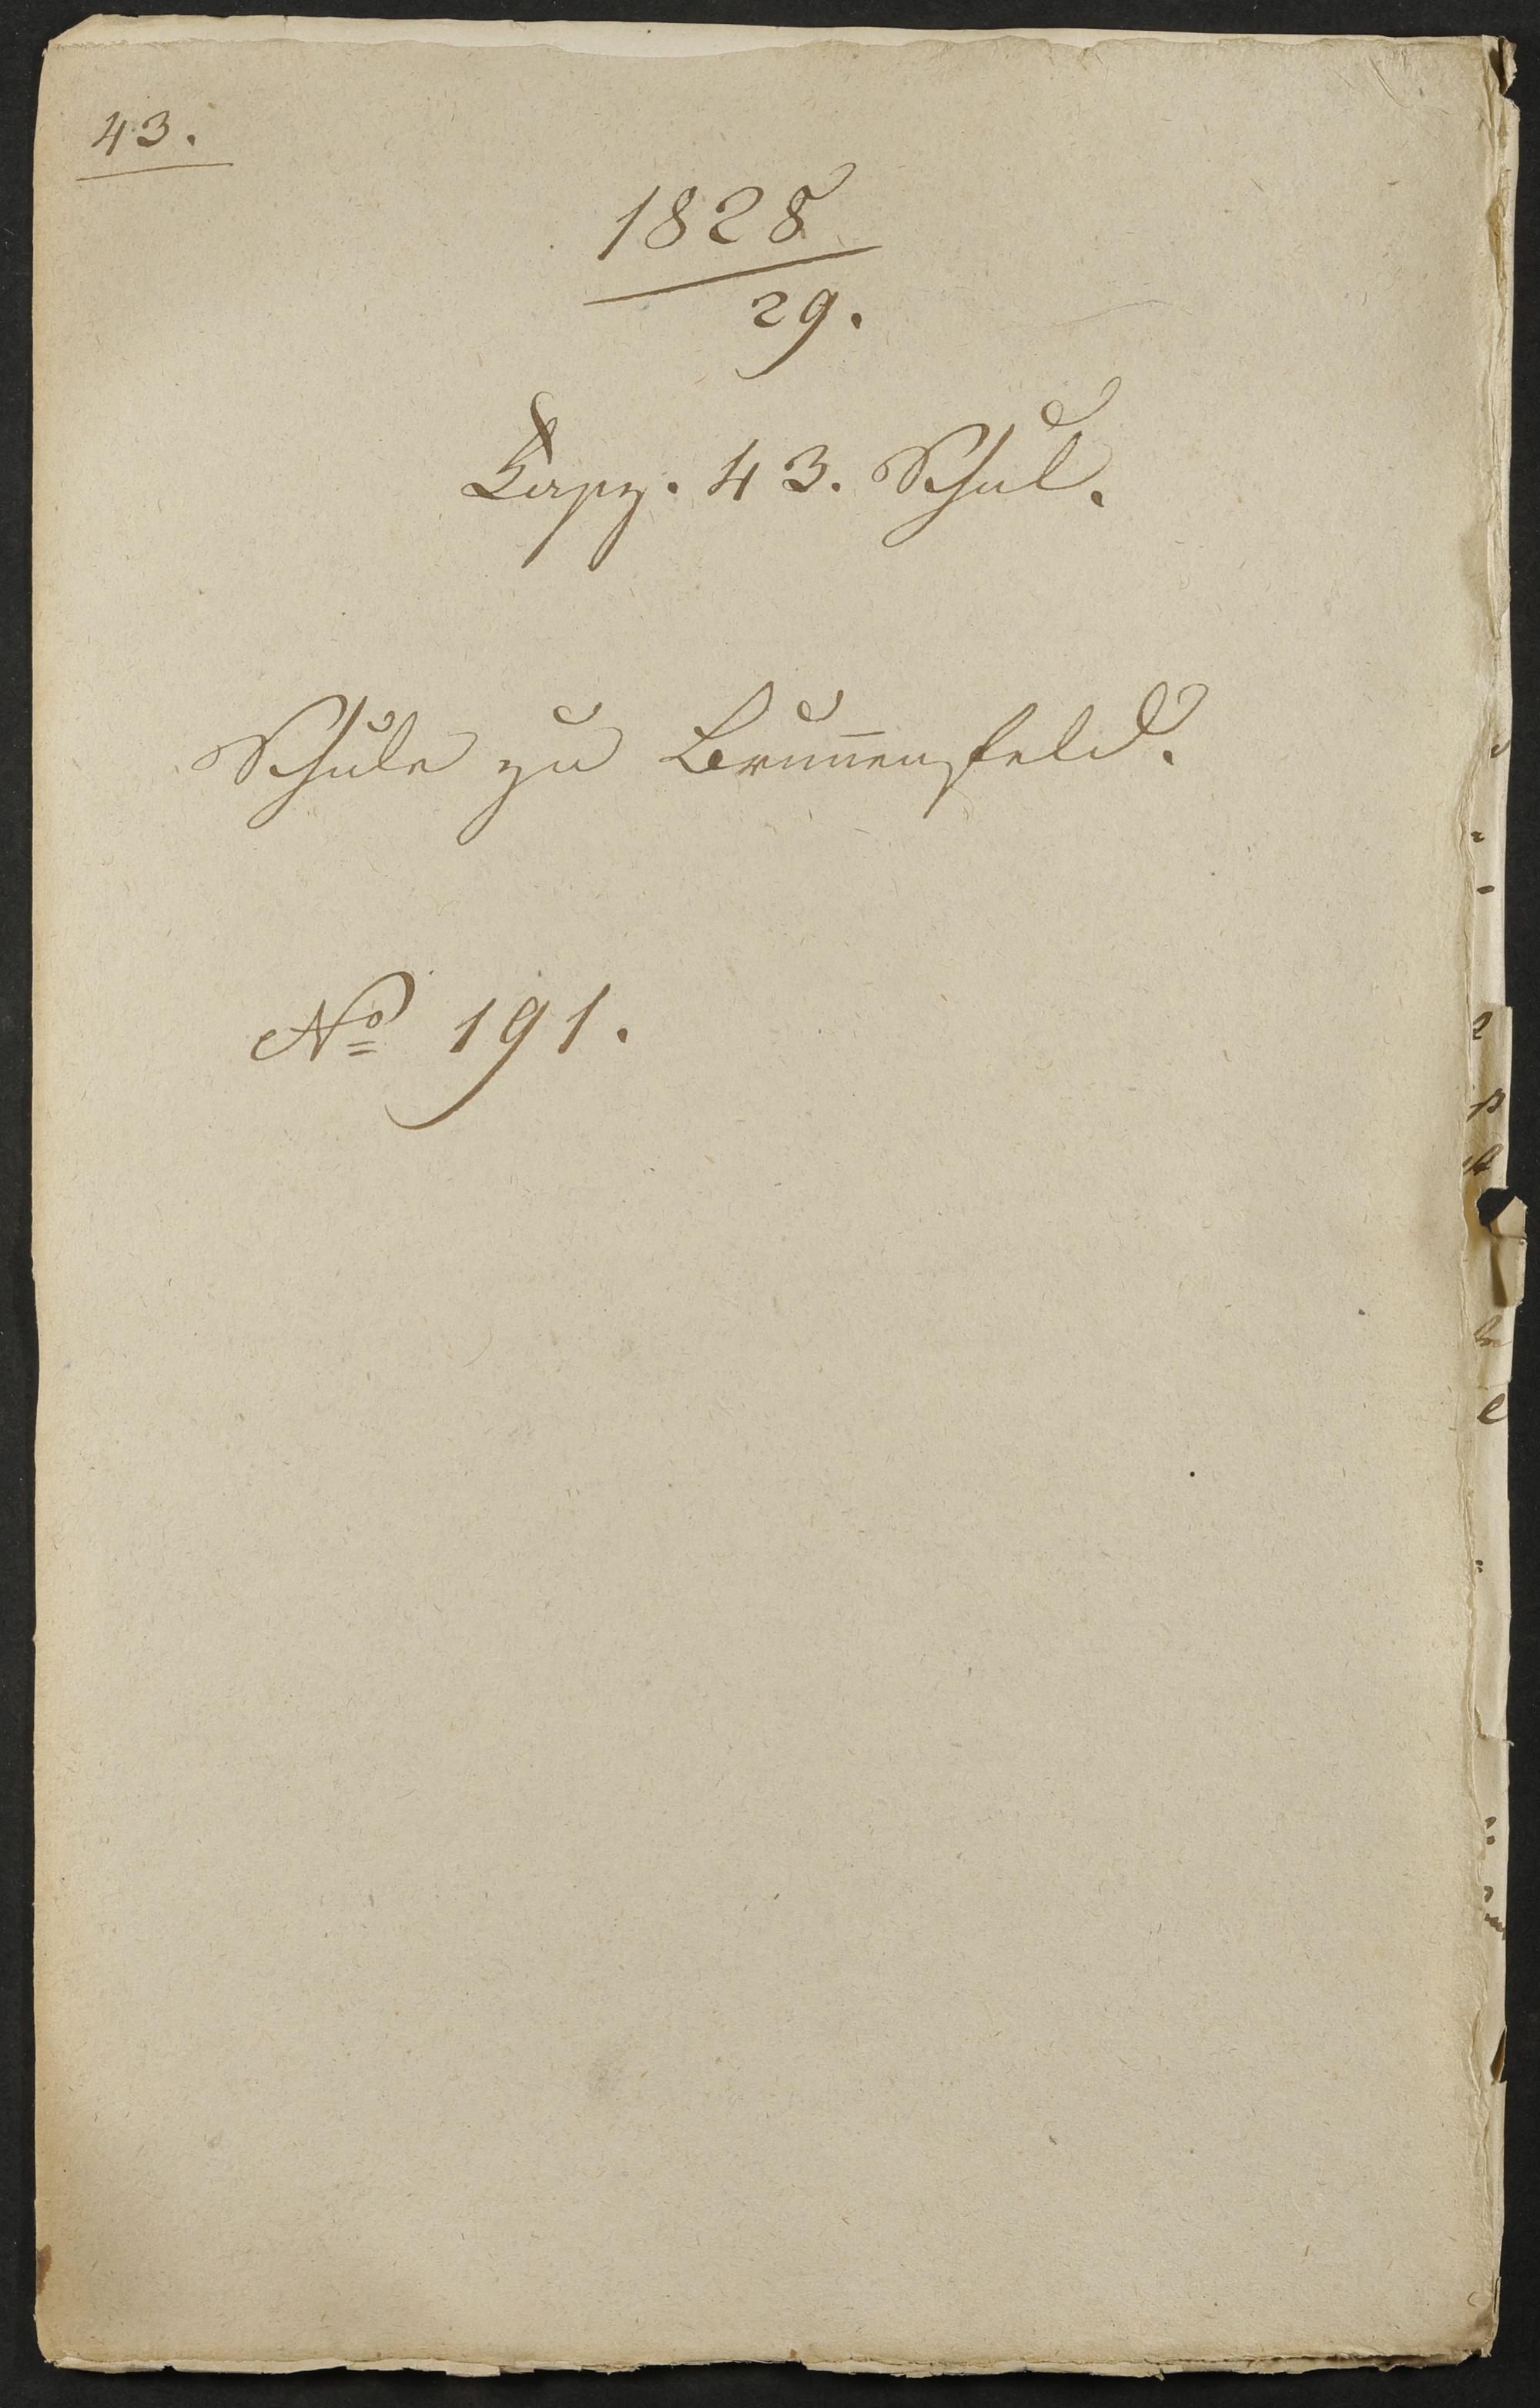 43.
1828
29.
43. Schul.
Schule zu Brun̄ensfeld.
No 191.